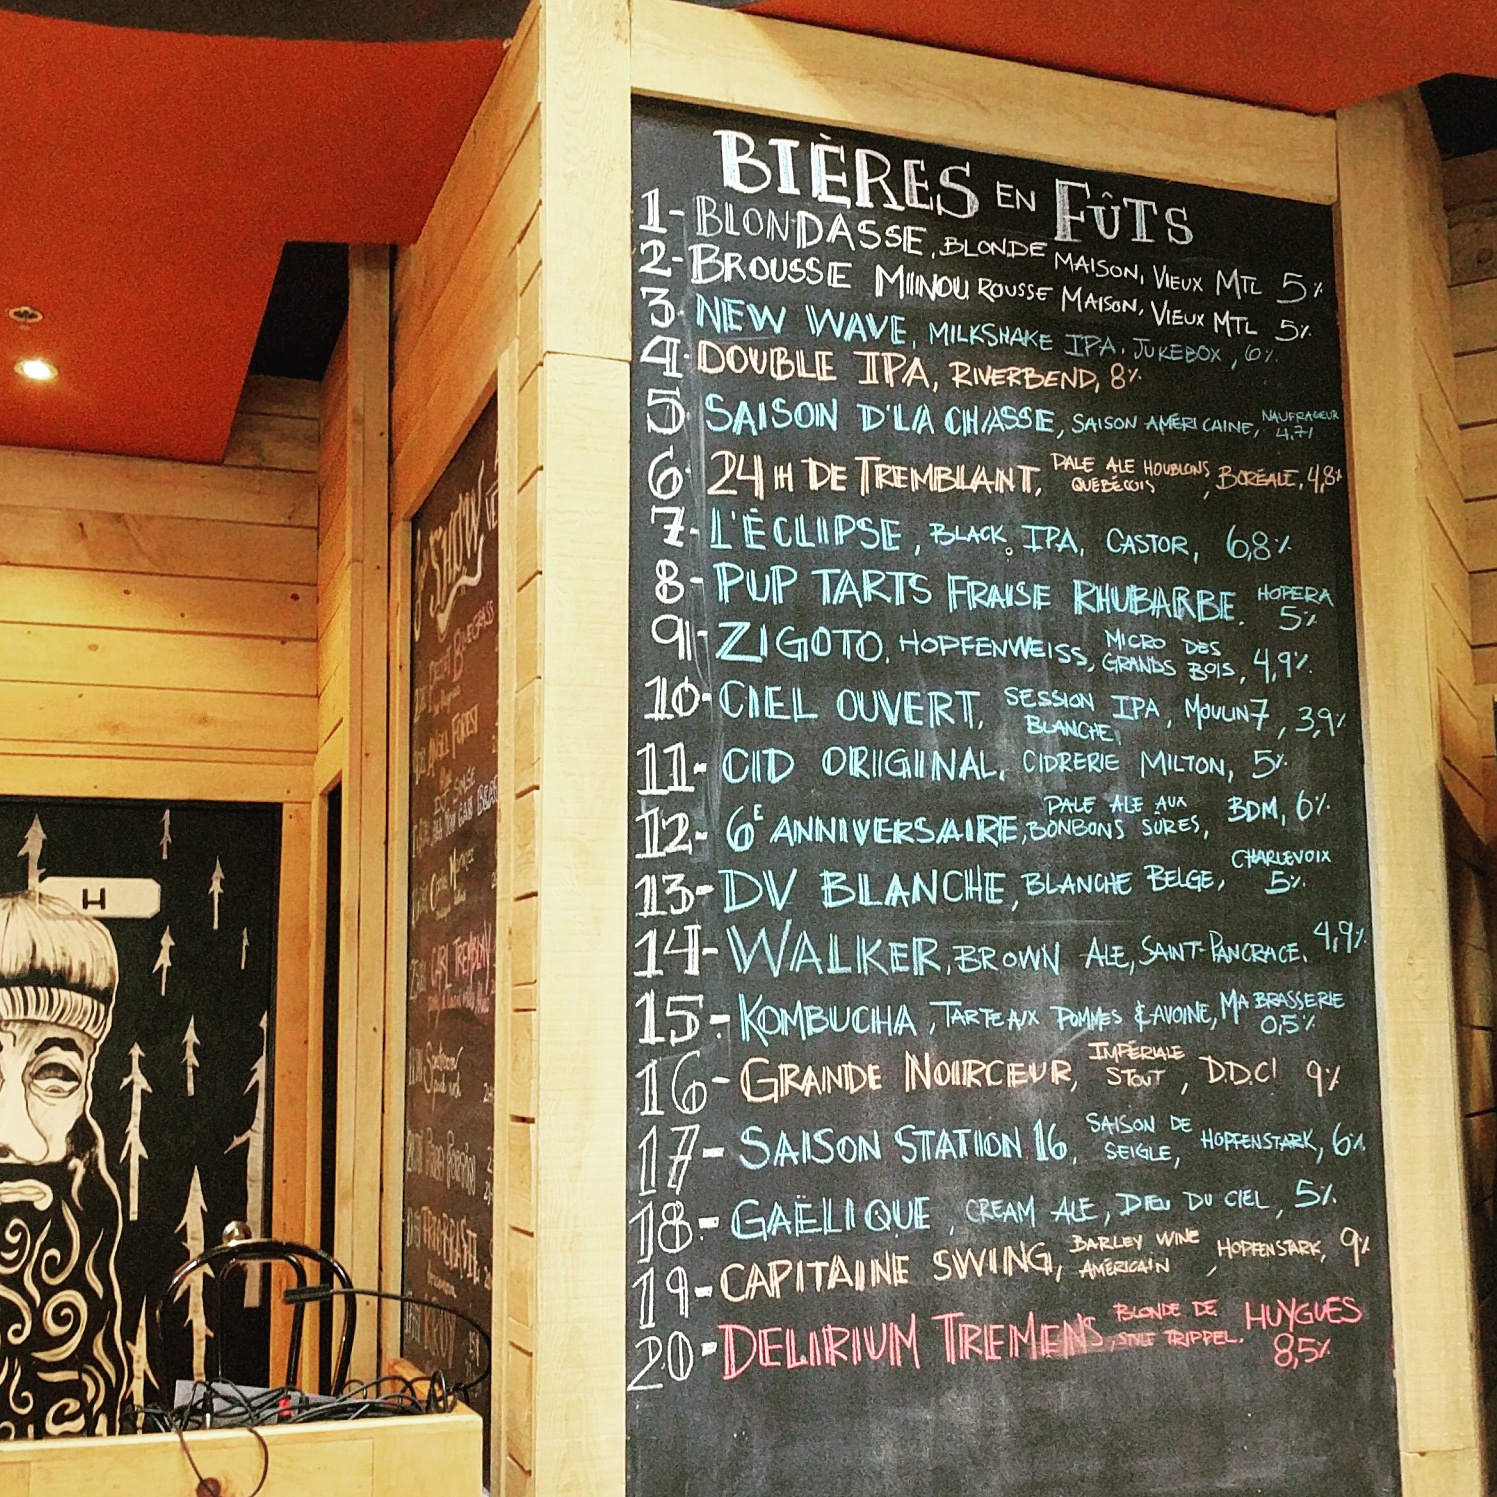 BIÈRES EN FÛTS
1- BLONDASSE, BLONDE MAISON, VIEUX MTL 5%
2- BROUSSE MINOU, ROUSSE MAISON, VIEUX MTL 5%
3- NEW WAVE, MILKSHAKE IPA, JUKEBOX, 6%
4- DOUBLE IPA, RIVERBEND, 8%
5- SAISON D'LA CHASSE, SAISON AMÉRICAINE, NAUFRAGEUR 4.7%
6- 24 H DE TREMBLANT, PALE ALE HOUBLONS QUÉBÉCOIS, BORÉALE, 4,8%
7- L'ÉCLIPSE, BLACK IPA, CASTOR, 6,8%
8- PUP TARTS FRAISE RHUBARBE, HOPERA 5%
9- ZIGOTO, HOPFENWEISS, MICRO DES GRANDS BOIS, 4,9%
10- CIEL OUVERT, SESSION IPA BLANCHE, MOULIN 7, 3,9%
11- CID ORIGINAL, CIDRERIE MILTON, 5%
12- 6E ANNIVERSAIRE, PALE ALE AUX BONBONS SÛRES, BDM, 6%
13- DV BLANCHE, BLANCHE BELGE, CHARLEVOIX 5%
14- WALKER, BROWN ALE, SAINT-PANCRACE, 4,9%
15- KOMBUCHA, TARTE AUX POMMES & AVOINE, MA BRASSERIE 0,5%
16- GRANDE NOIRCEUR, IMPÉRIALE STOUT, D.D.C! 9%
17- SAISON STATION 16, SAISON DE SEIGLE, HOPFENSTARK, 6%
18- GAËLIQUE, CREAM ALE, DIEU DU CIEL, 5%
19- CAPITAINE SWING, BARLEY WINE AMÉRICAIN, HOPFENSTARK, 9%
20- DELIRIUM TREMENS, BLONDE DE STYLE TRIPPEL. HUYGUES 8,5%
SHOW
H